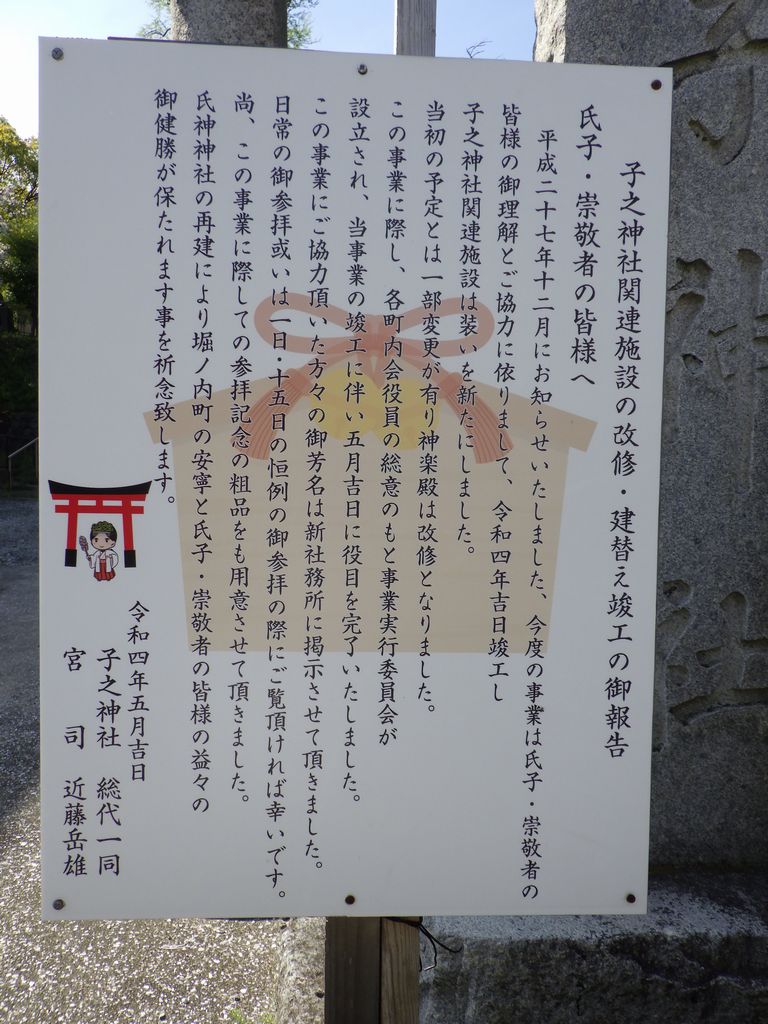 子之神社関連施設の改修・建替え竣工の御報告
氏子・崇敬者の皆様へ
平成二十七年十二月にお知らせいたしました、今度の事業は氏子・崇敬者の
皆様の御理解とご協力に依りまして、令和四年吉日竣工し
子之神社関連施設は装いを新たにしました。
当初の予定とは一部変更が有り神楽殿は改修となりました。
この事業に際し、各町内会役員の総意のもと事業実行委員会が
設立され、当事業の竣工に伴い五月吉日に役目を完了いたしました。
この事業にご協力頂いた方々の御芳名は新社務所に掲示させて頂きました。
日常の御参拝或いは一日・十五日の恒例の御参拝の際にご覧頂ければ幸いです。
尚、この事業に際しての参拝記念の粗品をも用意させて頂きました。
氏神神社の再建により堀ノ内町の安寧と氏子・崇敬者の皆様の益々の
御健勝が保たれます事を祈念致します。
令和四年五月吉日
子之神社 総代一同
宮司 近藤岳雄